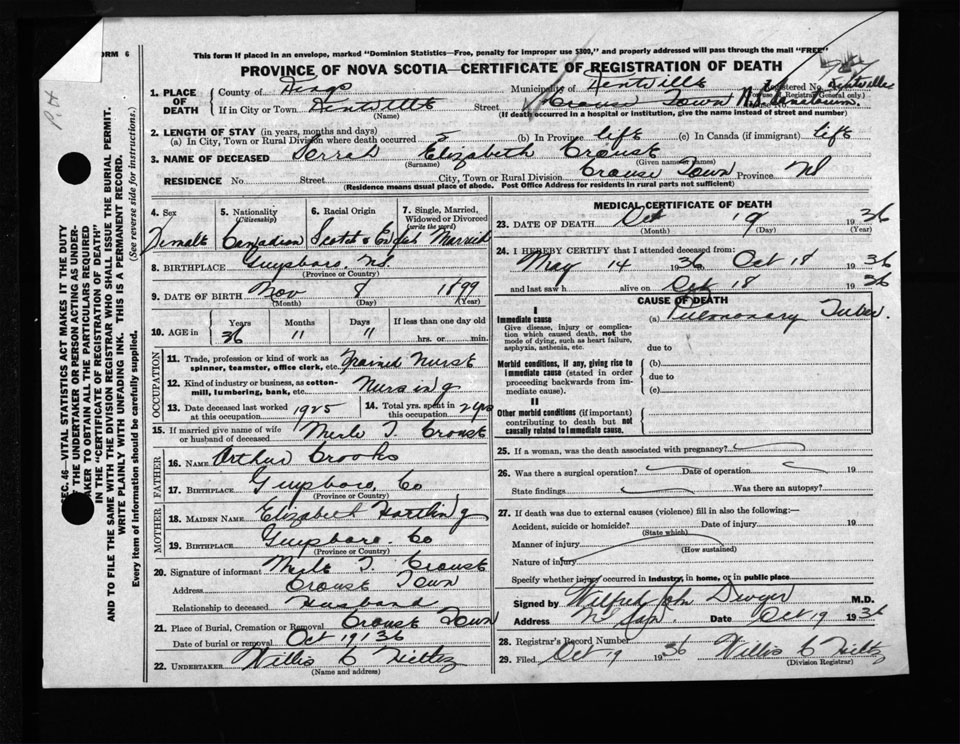 ORM 6
This form if placed in an envelope, marked "Dominion Statistics—Free, penalty for improper use $300," and properly addressed will pass through the mail "FREE"
PROVINCE OF NOVA SCOTIA—CERTIFICATE OF REGISTRATION OF DEATH
1. PLACE OF DEATH County of Municipality of Kentville Registered No.
(For use of Registrar General only.)
If in City or Town Kentville Street Crouse Town
(Name) (If death occurred in a hospital or institution, give the name instead of street and number)
2. LENGTH OF STAY (in years, months and days)
(a) In City, Town or Rural Division where death occurred (b) In Province life (c) In Canada (if immigrant) life
3. NAME OF DECEASED Elizabeth Crouse
(Surname) (Given name or names)
RESIDENCE No. Street City, Town or Rural Division Crouse Town Province NS
(Residence means usual place of abode. Post Office Address for residents in rural parts not sufficient)
4. Sex 5. Nationality (Citizenship) 6. Racial Origin 7. Single, Married, Widowed or Divorced (write the word)
Female Canadian Scotch & English Married
8. BIRTHPLACE Guysboro, NS
(Province or Country)
9. DATE OF BIRTH Nov 8 1899
(Month) (Day) (Year)
10. AGE in Years Months Days If less than one day old
36 11 11 hrs. or min.
OCCUPATION
11. Trade, profession or kind of work as spinner, teamster, office clerk, etc. Trained Nurse
12. Kind of industry or business, as cotton-mill, lumbering, bank, etc. Nursing
13. Date deceased last worked at this occupation 1925 14. Total yrs. spent in this occupation 2 yrs
15. If married give name of wife or husband of deceased Merle T. Crouse
FATHER
16. NAME Arthur Crooks
17. BIRTHPLACE Guysboro, Co
(Province or Country)
MOTHER
18. MAIDEN NAME Elizabeth Hattling
19. BIRTHPLACE Guysboro. Co
(Province or Country)
20. Signature of informant Merle T. Crouse
Address Crouse Town
Relationship to deceased Husband
21. Place of Burial, Cremation or Removal Crouse Town
Date of burial or removal Oct 19 1936
22. UNDERTAKER Willis C
(Name and address)
MEDICAL CERTIFICATE OF DEATH
23. DATE OF DEATH Oct 19 1936
(Month) (Day) (Year)
24. I HEREBY CERTIFY that I attended deceased from:
May 14 1936 Oct 18 1936
and last saw h alive on Oct 18 1936
CAUSE OF DEATH
I
Immediate cause (a) Pulmonary Tuber.
Give disease, injury or complication which caused death, not the mode of dying, such as heart failure, asphyxia, asthenia, etc.
due to
Morbid conditions, if any, giving rise to immediate cause (stated in order proceeding backwards from immediate cause).
(b)
due to
(c)
II
Other morbid conditions (if important) contributing to death but not causally related to immediate cause.
25. If a woman, was the death associated with pregnancy?
26. Was there a surgical operation? Date of operation 19
State findings Was there an autopsy?
27. If death was due to external causes (violence) fill in also the following:—
Accident, suicide or homicide? Date of injury 19
(State which)
Manner of injury
(How sustained)
Nature of injury
Specify whether injury occurred in industry, in home, or in public place
Signed by Wilfred John Dwyer M.D.
Address N S Sana Date Oct 19 1936
28. Registrar's Record Number
29. Filed Oct 19 1936 Willis C
(Division Registrar)
SEC. 46—VITAL STATISTICS ACT MAKES IT THE DUTY
THE UNDERTAKER OR PERSON ACTING AS UNDER-
TAKER TO OBTAIN ALL THE PARTICULARS REQUIRED
IN THE "CERTIFICATE OF REGISTRATION OF DEATH"
AND TO FILE THE SAME WITH THE DIVISION REGISTRAR WHO SHALL ISSUE THE BURIAL PERMIT.
WRITE PLAINLY WITH UNFADING INK. THIS IS A PERMANENT RECORD.
Every item of information should be carefully supplied. (See reverse side for instructions.)